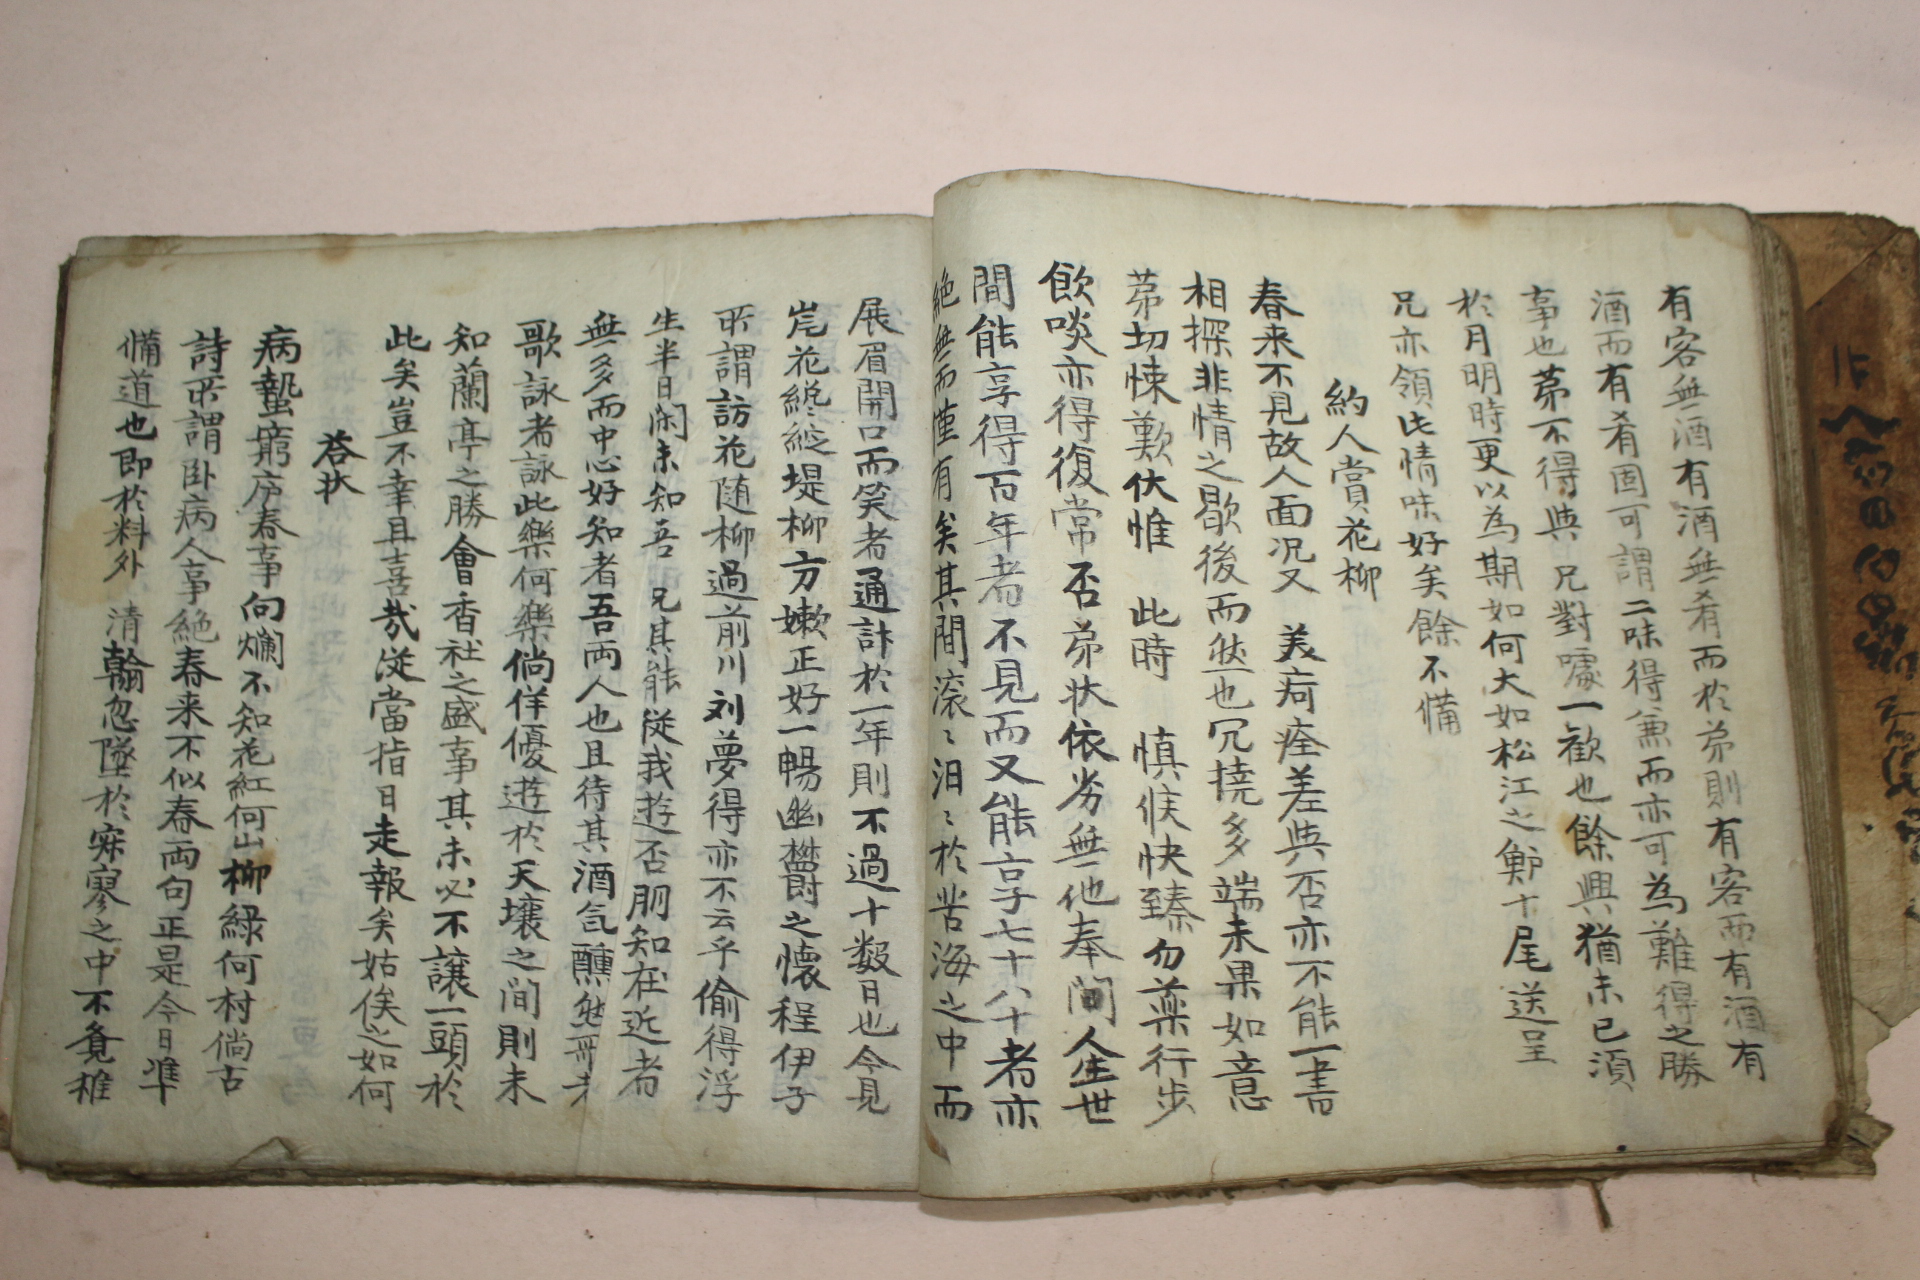 有客無酒有酒無肴而於弟則有客而有酒有
酒而有肴固可謂二味得兼而亦可為難得之勝
事也弟不得與兄對噱一歡也餘興猶未已須
於月明時更以為期如何大如松江之鱸十尾送呈
兄亦領此情味好矣餘不備
約人賞花柳
春来不見故人面况又 美疴痊差與否亦不能一書
相探非情之歇後而然也冗撓多端未果如意
弟切悚歎伏惟 此時 愼候快臻勿藥行步
飮啖亦得復常否弟狀依劣無他奉間人生世
間能享得百年者不見而又能享七十八十者亦
絶無而僅有矣其間滚〻汨〻於苦海之中而
展眉開口而笑者通計於一年則不過十數日也今見
岸花綻堤柳方嫩正好一暢幽欝之懷程伊子
所謂訪花随柳過前川刘夢得亦不云乎偷得浮
生半日閑未知吾兄其能從我遊否朋知在近者
無多而中心好知者吾両人也且待其酒氣醺然哥者
歌詠者詠此樂何樂倘佯優遊於天壤之間則未
知蘭亭之勝會香社之盛事其未必不讓一頭於
此矣豈不幸且喜哉從當指日走報矣姑俟之如何
荅狀
病蟄窮廬春事向爛不知花紅何山柳綠何村倘古
詩所謂卧病人事絶春来不似春両句正是今日準
備道也即於料外 清翰忽墜於寂寥之中不覺稚